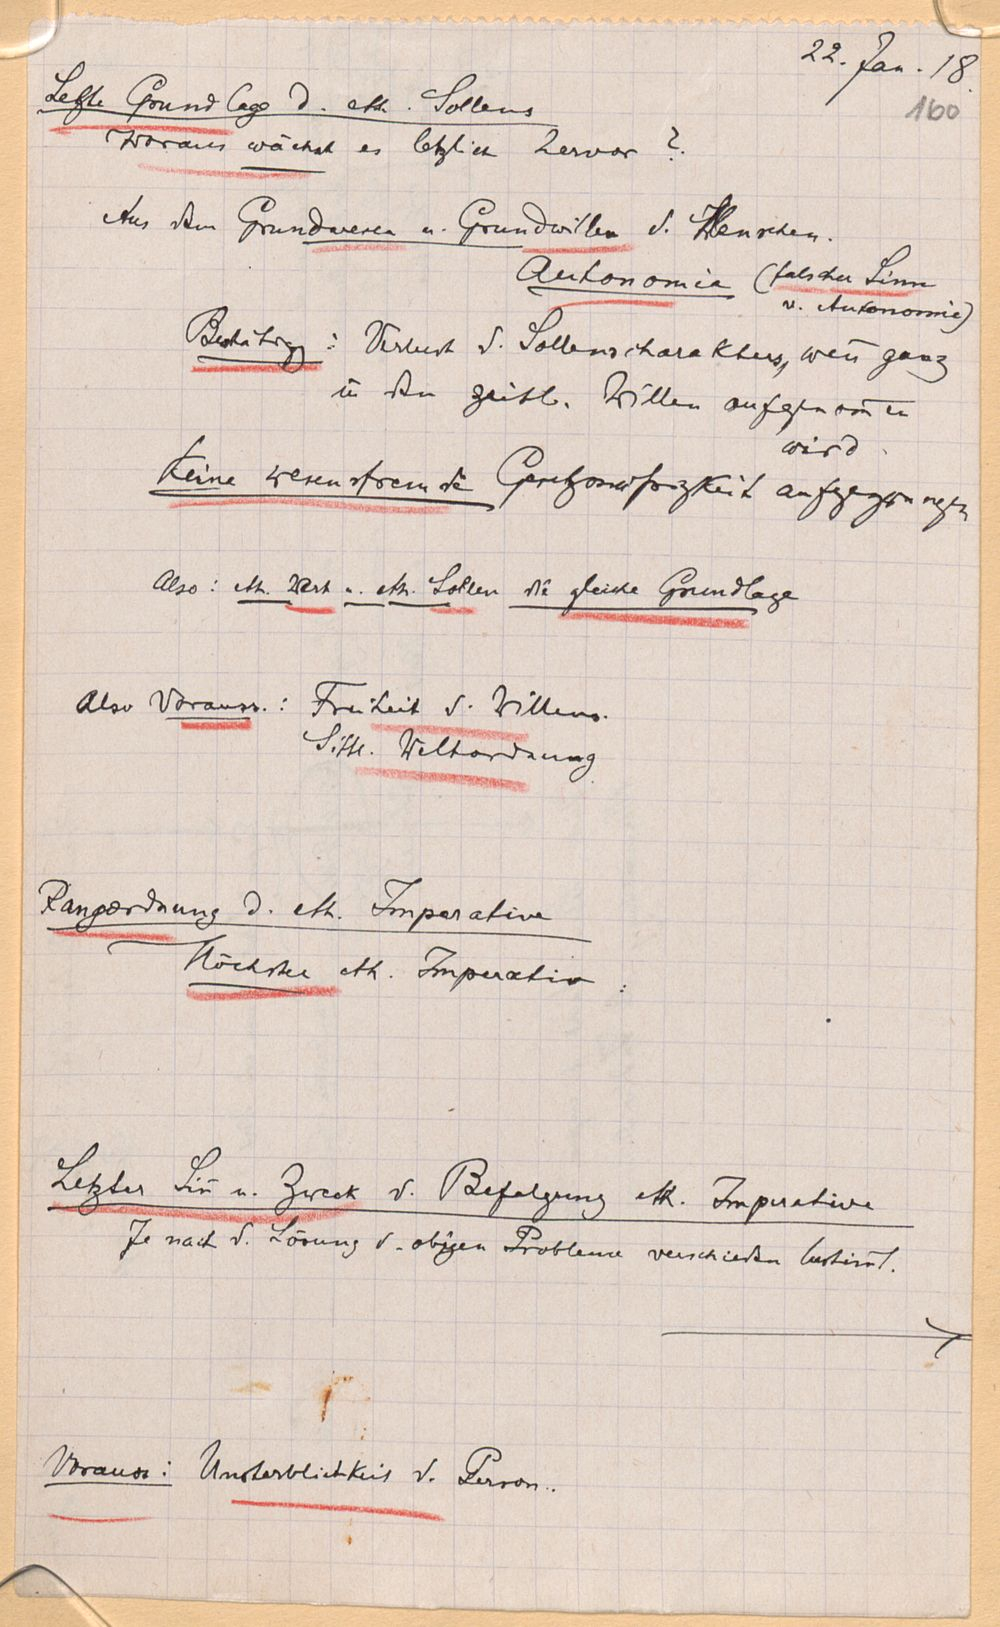 22. Jan. 18.
160
Letzte Grundlage d. eth. Sollens
Woraus wächst es letztlich hervor?
Aus dem Grundwesen u. Grundwillen d. Menschen.
Autonomie (falscher Sinn
v. Autonomie)
Bestätigg: Verlust d. Sollenscharakters, weñ ganz
in den zeitl. Willen aufgenom̄en
wird.
Keine wesensfremde Gesetzmäßigkeit aufgezwungen
Also: eth. Wert u. eth. Sollen die gleiche Grundlage
Also Vorauss.: Freiheit d. Willens.
Sittl. Weltordnung
Rangordnung d. eth. Imperative
Höchster eth. Imperativ:
Letzter Siñ u. Zweck d. Befolgung eth. Imperative
Je nach d. Lösung d. obigen Probleme verschieden bestim̄t.
Vorauss: Unsterblichkeit d. Person.